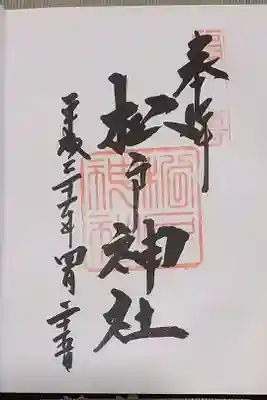 奉拝
松戸神社
平成二十六年四月二十五日
松戸神社